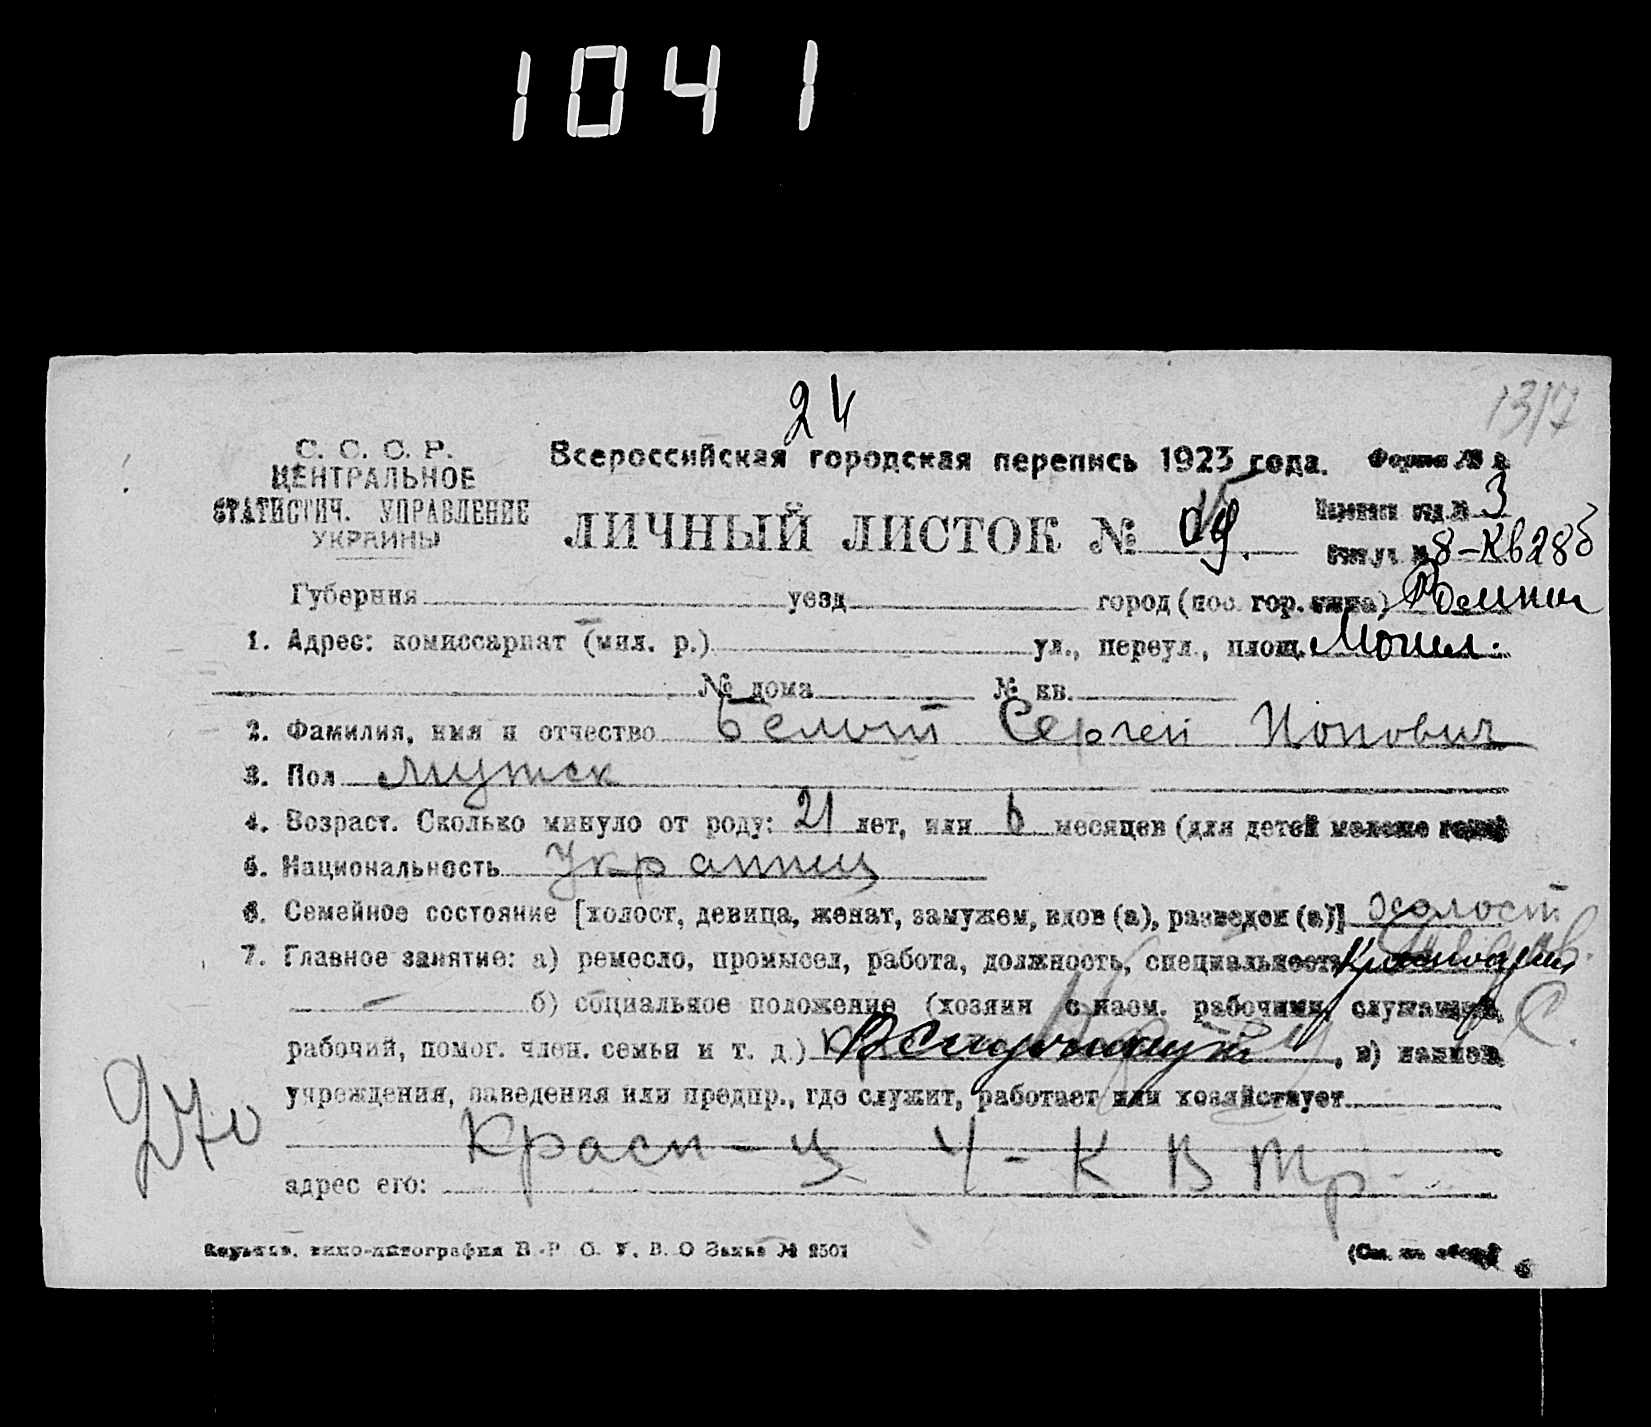 1041
24
1317
С. С. С. Р.
ЦЕНТРАЛЬНОЕ
СТАТИСТИЧ. УПРАВЛЕНИЕ
УКРАИНЫ
Всероссийская городская перепись 1923 года.
ЛИЧНЫЙ ЛИСТОК №
3
8-Кв28б
Губерния уезд город (пос. гор. типа) Ромны
1. Адрес: комиссариат (мил. р.) ул., переул., площ. Могил.
№ дома № кв.
2. Фамилия, имя и отчество Белый Сергей Попович
3. Пол мужск
4. Возраст. Сколько минуло от роду: 21 лет, или 6 месяцев (для детей моложе года)
5. Национальность Украинц
6. Семейное состояние [холост, девица, женат, замужем, вдов (а), разведен (а)] Холост
7. Главное занятие: а) ремесло, промысел, работа, должность, специальность
б) социальное положение (хозяин с наем. рабочими, служащий,
рабочий, помог. член. семьи и т. д.) , в) наимен.
учреждения, заведения или предпр., где служит, работает или хозяйствует
270
Красн-ц 4-К В Тр.
адрес его:
Харьков, типо-литография В. Заказ № 2501
(См. на обор.)